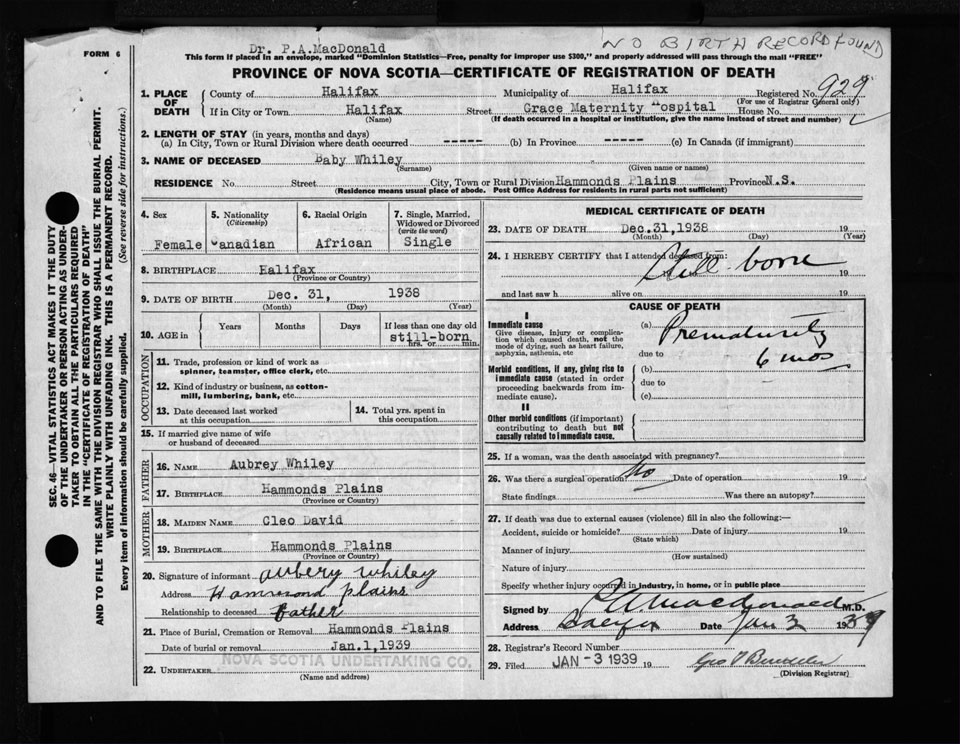 Dr. P.A.MacDonald
NO BIRTH RECORD FOUND
FORM 6
This form if placed in an envelope, marked "Dominion Statistics—Free, penalty for improper use $300," and properly addressed will pass through the mail "FREE"
PROVINCE OF NOVA SCOTIA—CERTIFICATE OF REGISTRATION OF DEATH
SEC. 46—VITAL STATISTICS ACT MAKES IT THE DUTY
OF THE UNDERTAKER OR PERSON ACTING AS UNDER-
TAKER TO OBTAIN ALL THE PARTICULARS REQUIRED
IN THE "CERTIFICATE OF REGISTRATION OF DEATH"
AND TO FILE THE SAME WITH THE DIVISION REGISTRAR WHO SHALL ISSUE THE BURIAL PERMIT.
WRITE PLAINLY WITH UNFADING INK. THIS IS A PERMANENT RECORD.
Every item of information should be carefully supplied. (See reverse side for instructions.)
1. PLACE OF DEATH
County of Halifax Municipality of Halifax Registered No. 929
(For use of Registrar General only)
If in City or Town Halifax Street Grace Maternity Hospital House No.
(Name) (If death occurred in a hospital or institution, give the name instead of street and number)
2. LENGTH OF STAY (in years, months and days)
(a) In City, Town or Rural Division where death occurred ----- (b) In Province ------ (c) In Canada (if immigrant)
3. NAME OF DECEASED Baby Whiley
(Surname) (Given name or names)
RESIDENCE No. Street City, Town or Rural Division Hammonds Plains Province N.S.
(Residence means usual place of abode. Post Office Address for residents in rural parts not sufficient)
4. Sex Female
5. Nationality (Citizenship) Canadian
6. Racial Origin African
7. Single, Married, Widowed or Divorced (write the word) Single
8. BIRTHPLACE Halifax
(Province or Country)
9. DATE OF BIRTH Dec. 31, 1938
(Month) (Day) (Year)
10. AGE in Years Months Days If less than one day old
still-born
hrs. or min.
OCCUPATION
11. Trade, profession or kind of work as
spinner, teamster, office clerk, etc.
12. Kind of industry or business, as cotton-
mill, lumbering, bank, etc.
13. Date deceased last worked
at this occupation
14. Total yrs. spent in
this occupation
15. If married give name of wife
or husband of deceased
FATHER
16. NAME Aubrey Whiley
17. BIRTHPLACE Hammonds Plains
(Province or Country)
MOTHER
18. MAIDEN NAME Cleo David
19. BIRTHPLACE Hammonds Plains
(Province or Country)
20. Signature of informant Aubery Whiley
Address Hammond plains
Relationship to deceased father
21. Place of Burial, Cremation or Removal Hammonds Plains
Date of burial or removal Jan.1,1939
22. UNDERTAKER NOVA SCOTIA UNDERTAKING CO.
(Name and address)
MEDICAL CERTIFICATE OF DEATH
23. DATE OF DEATH Dec.31,1938
(Month) (Day) (Year)
24. I HEREBY CERTIFY that I attended deceased from:
Still born 19
and last saw h alive on 19
CAUSE OF DEATH
I
Immediate cause
Give disease, injury or complica-
tion which caused death, not the
mode of dying, such as heart failure,
asphyxia, asthenia, etc
(a) Prematurity
due to 6 mos
Morbid conditions, if any, giving rise to
immediate cause (stated in order
proceeding backwards from im-
mediate cause).
(b)
due to
(c)
II
Other morbid conditions (if important)
contributing to death but not
causally related to immediate cause.
25. If a woman, was the death associated with pregnancy?
26. Was there a surgical operation? No Date of operation 19
State findings Was there an autopsy?
27. If death was due to external causes (violence) fill in also the following:—
Accident, suicide or homicide? Date of injury 19
(State which)
Manner of injury
(How sustained)
Nature of injury
Specify whether injury occurred in industry, in home, or in public place
Signed by P.A. Macdonald M.D.
Address Halifax Date Jan 3 1939
28. Registrar's Record Number
29. Filed JAN -3 1939 19
(Division Registrar)